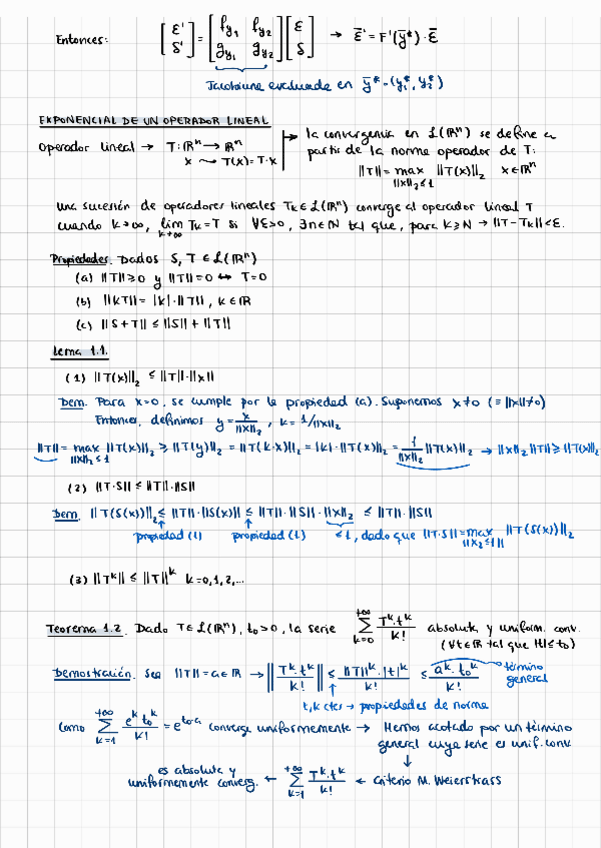 Entonces: [ε' δ'] = [f_{y_1} f_{y_2} ; g_{y_1} g_{y_2}] [ε δ] → ε̄' = F'(ȳ*)·ε̄
Jacobiana evaluada en ȳ* = (y₁*, y₂*)
EXPONENCIAL DE UN OPERADOR LINEAL
Operador lineal → T: ℝⁿ → ℝⁿ
x ⤳ T(x) = T·x
la convergencia en L(ℝⁿ) se define a
partir de la norma operador de T:
||T|| = max_{||x||₂≤1} ||T(x)||₂ x∈ℝⁿ
Una sucesión de operadores lineales T_k ∈ L(ℝⁿ) converge al operador lineal T
cuando k→∞, lim_{k→∞} T_k = T si ∀ε>0, ∃n∈ℕ tal que, para k≥N → ||T-T_k||<ε.
Propiedades. Dados S, T ∈ L(ℝⁿ)
(a) ||T||≥0 y ||T||=0 ↔ T=0
(b) ||kT|| = |k|·||T||, k∈ℝ
(c) ||S+T|| ≤ ||S|| + ||T||
Lema 1.1.
(1) ||T(x)||₂ ≤ ||T||·||x||
Dem. Para x=0, se cumple por la propiedad (a). Suponemos x≠0 (≡ ||x||≠0)
Entonces, definimos y = x/||x||₂, k = 1/||x||₂
||T|| = max_{||x||₂≤1} ||T(x)||₂ ≥ ||T(y)||₂ = ||T(k·x)||₂ = |k|·||T(x)||₂ = 1/||x||₂ ||T(x)||₂ → ||x||₂||T|| ≥ ||T(x)||₂
(2) ||T·S|| ≤ ||T||·||S||
Dem. ||T(S(x))||₂ ≤ ||T||·||S(x)|| ≤ ||T||·||S||·||x||₂ ≤ ||T||·||S||
propiedad (1) propiedad (1) ≤1, dado que ||T·S|| = max_{||x₂≤1||} ||T(S(x))||₂
(3) ||T^k|| ≤ ||T||^k k=0,1,2,...
Teorema 1.2. Dado T∈L(ℝⁿ), t₀>0, la serie Σ_{k=0}^{+∞} T^k·t^k/k! absoluta y uniform. conv.
(∀t∈ℝ tal que |t|≤t₀)
Demostración. Sea ||T||=a∈ℝ → ||T^k·t^k/k!|| ≤ ||T||^k·|t|^k/k! ≤ a^k·t₀^k/k! término
general
t,k ctes → propiedades de norma
Como Σ_{k=1}^{+∞} e^k t₀^k/k! = e^{t₀·a} converge uniformemente → Hemos acotado por un término
general cuya serie es unif. conv
↓
es absoluta y
uniformemente converg. ← Σ_{k=1}^{+∞} T^k·t^k/k! ← Criterio M. Weierstrass